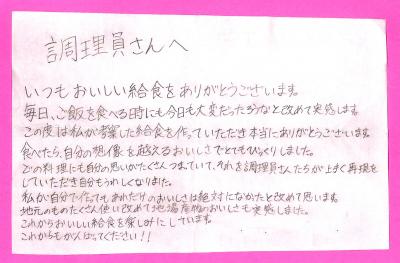 調理員さんへ
いつもおいしい給食をありがとうございます。
毎日、ご飯を食べる時にも今日も大変だったろうなと改めて実感します。
この度は私が考案した給食を作っていただき本当にありがとうございます。
食べたら、自分の想像を越えるおいしさでとてもびっくりしました。
どの料理にも自分の思いがたくさんつまっていて、それを調理員さんたちが上手く再現を
していただき自分もうれしくなりました。
私が自分で作ってもあれだけのおいしさは絶対になかったと改めて思います。
地元のものたくさん使い改めて地場産物のおいしさも実感しました。
これからおいしい給食を楽しみにしています。
これからもがんばってください!!